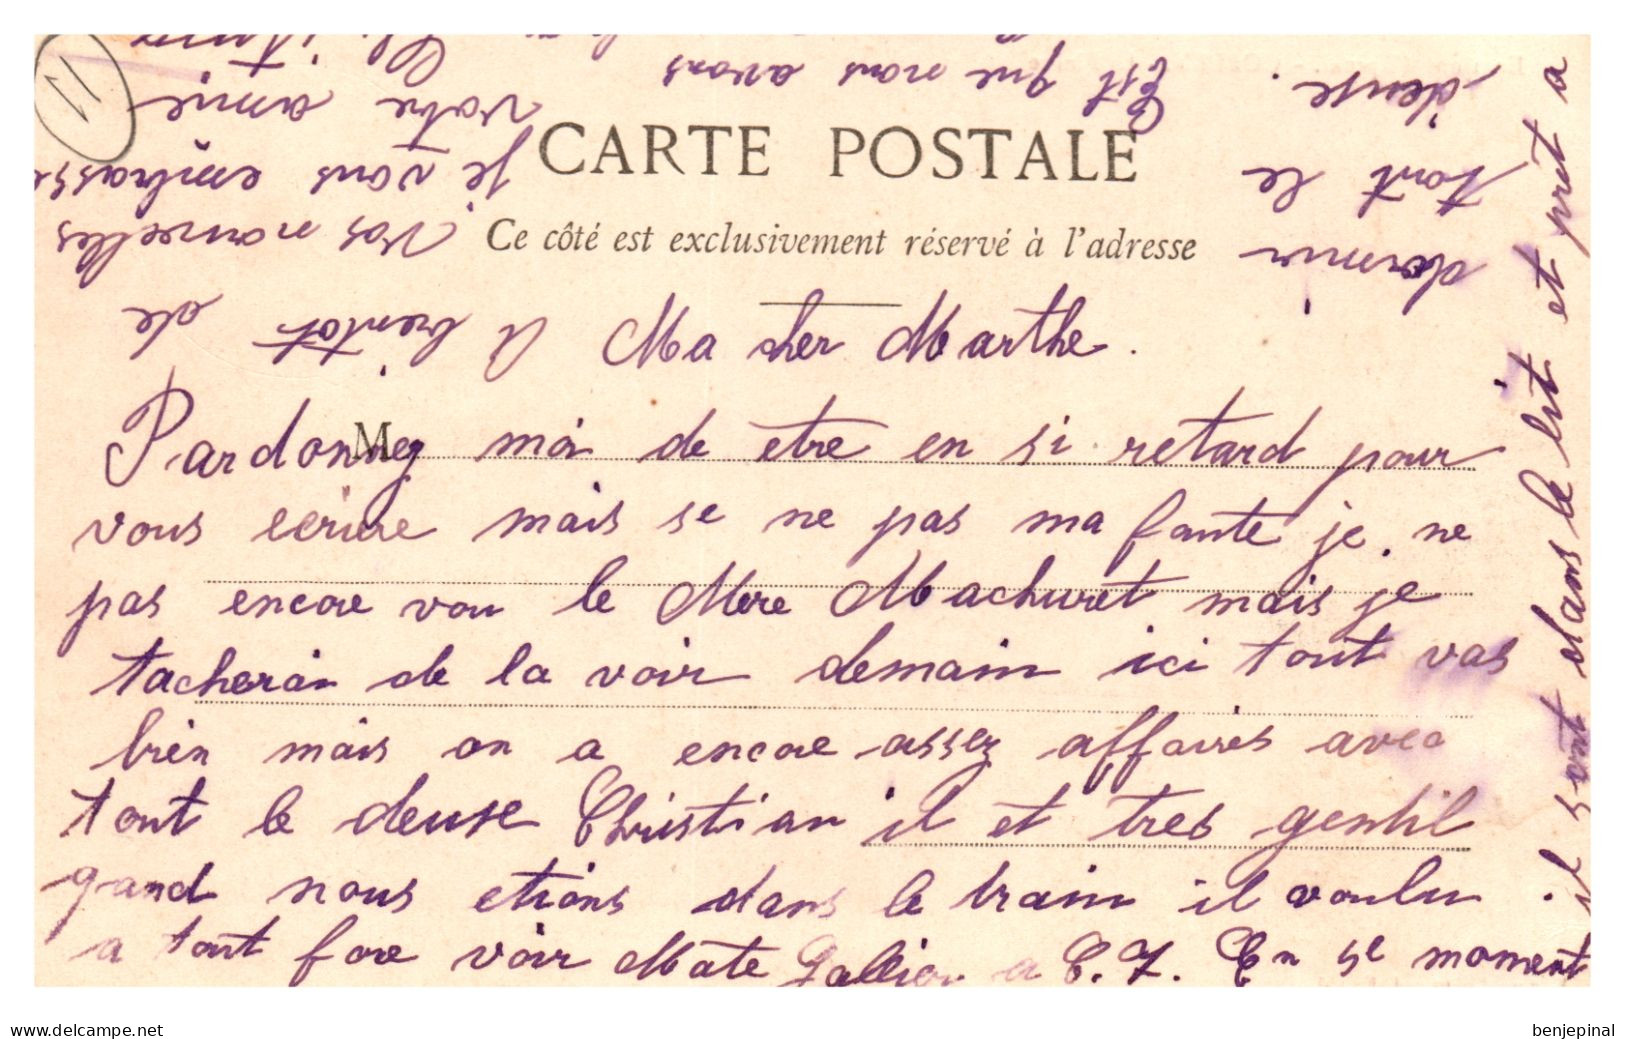 11
CARTE POSTALE
Ce côté est exclusivement réservé à l'adresse
Ma cher Marthe.
M
Pardonnez moi de etre en si retard pour
vous ecrire mais se ne pas ma faute je ne
pas encore vou le Mere Machuret mais je
tacherai de la voir demain ici tout vas
bien mais on a encore assez affaires avec
tout le deuse Christian il et tres gentil
quand nous etions dans le train il voulu
a tout fore voir Mate a C. F. En se moment
il sont dans le lit et pret a
dormir
tout le
deuse.
Est que nous avons
A bientot de
Vos nouvelles
Je vous embrasse
votre amie
www.delcampe.net
benjepinal